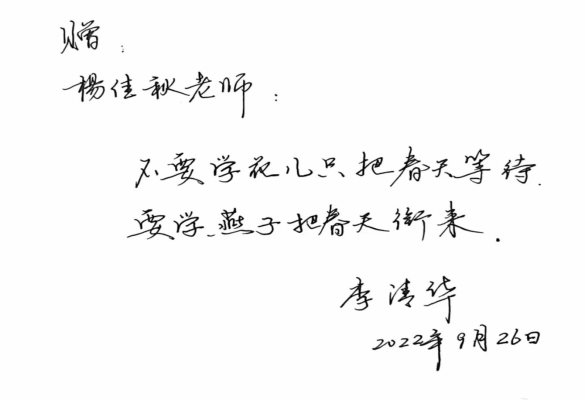 赠：
杨佳秋老师：
不要学花儿只把春天等待.
要学燕子把春天衔来.
李清华
2022年9月26日